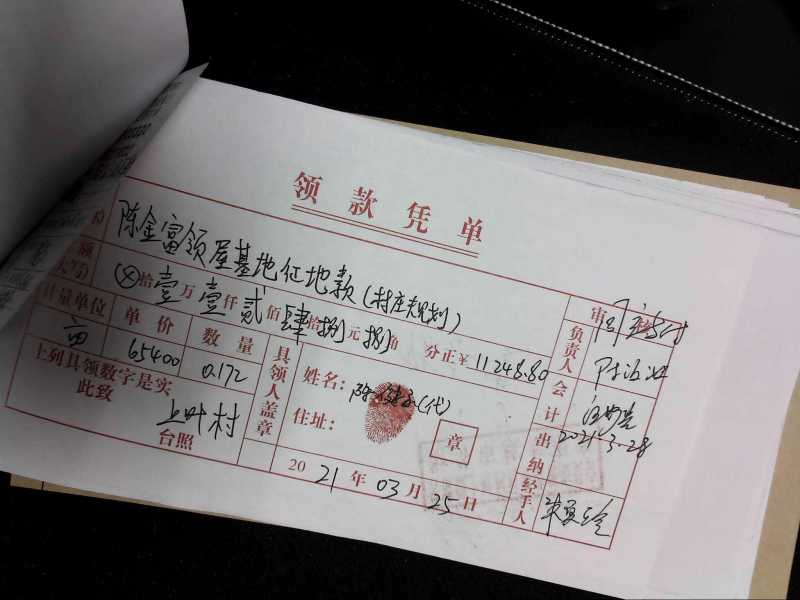 领款凭单
份 陈金富领屋基地征地款(村庄规划)
额(大写) ⊗拾壹万壹仟贰佰肆拾捌元捌角 分正¥11248.80
计量单位 单价 数量
亩 65400 0.172
上列具领数字是实
此致
上叶村
台照
具领人盖章
姓名: (代)
住址:
章
2021年03月25日
审
负责人
会计
2021.3.28
出纳
经手人